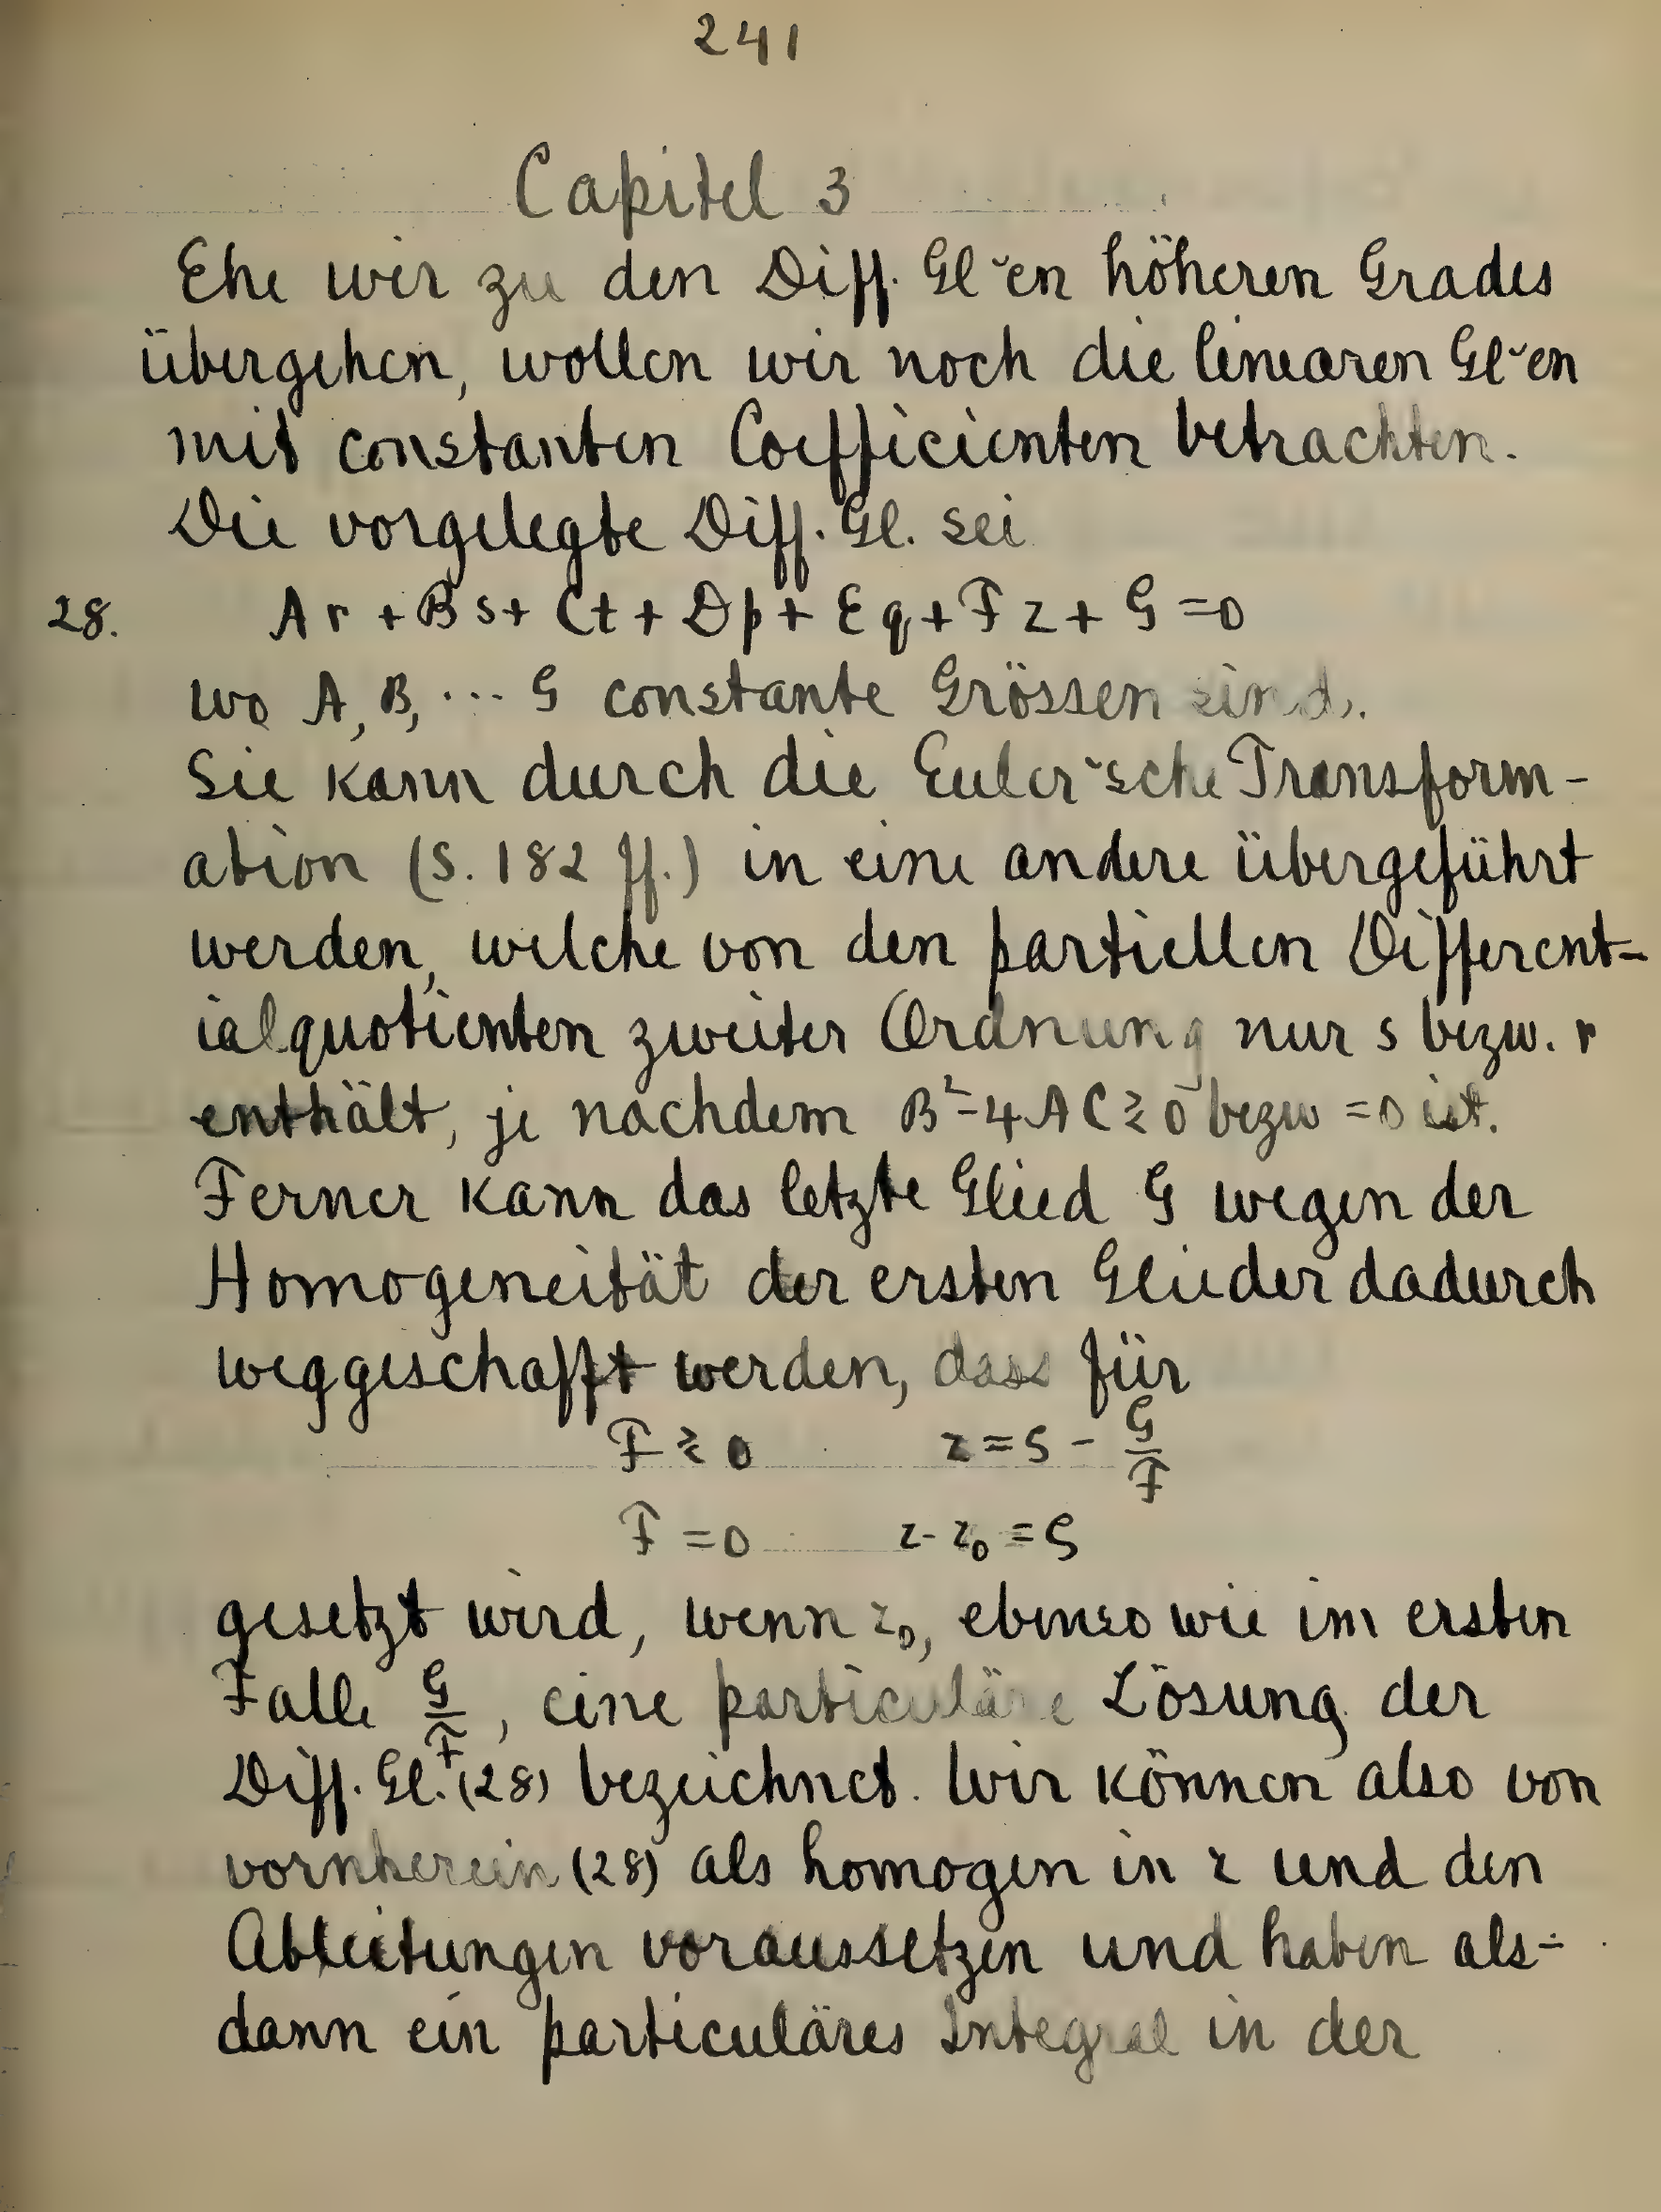 241
Capitel 3
Ehe wir zu den Diff. Gl˘en höheren Grades
übergehen, wollen wir noch die linearen Gl˘en
mit constanten Coefficienten betrachten.
Die vorgelegte Diff. Gl. sei
28. Ar + Bs + Ct + Dp + Eq + Fz + G = 0
wo A, B, ... G constante Grössen sind.
Sie kann durch die Euler'sche Transform-
ation (S. 182 ff.) in eine andere übergeführt
werden, welche von den partiellen Different-
ialquotienten zweiter Ordnung nur s bezw. r
enthält, je nachdem B²-4AC ≷ 0 bezw = 0 ist.
Ferner kann das letzte Glied G wegen der
Homogeneität der ersten Glieder dadurch
weggeschafft werden, dass für
F ≷ 0 z = ζ - G/F
F = 0 z - z₀ = ζ
gesetzt wird, wenn z₀, ebenso wie im ersten
Falle G/F, eine particuläre Lösung der
Diff. Gl. (28) bezeichnet. Wir können also von
vornherein (28) als homogen in z und den
Ableitungen voraussetzen und haben als-
dann ein particuläres Integral in der